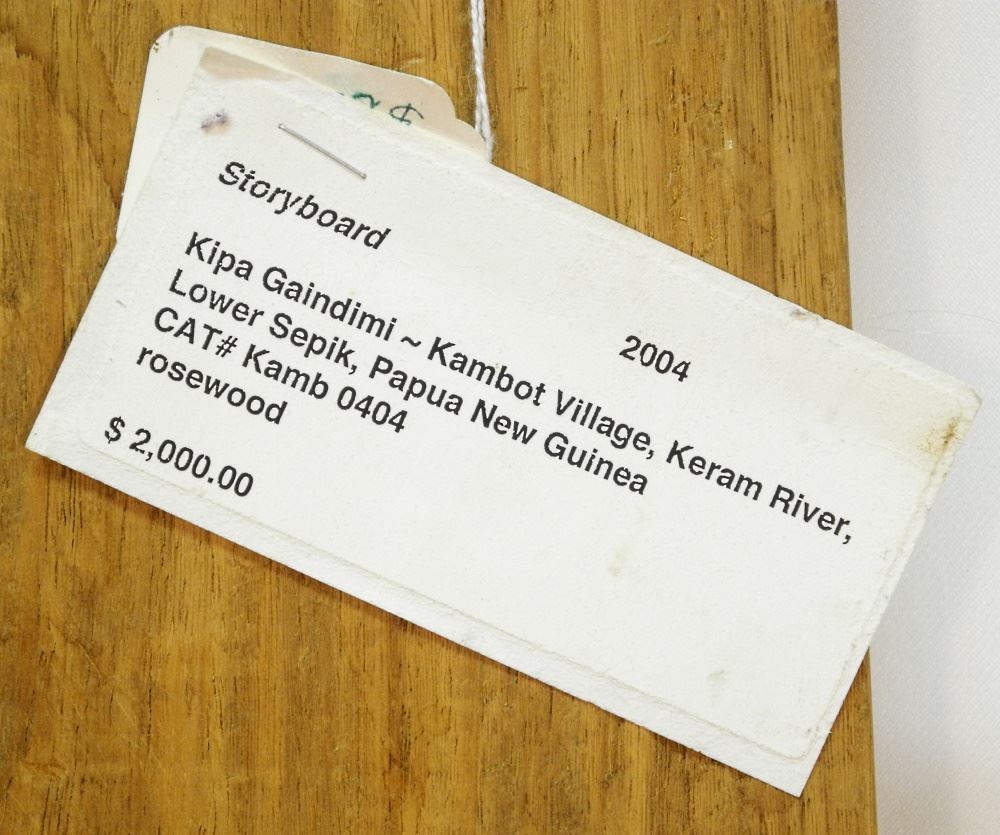 Storyboard
2004
Kipa Gaindimi ~ Kambot Village, Keram River,
Lower Sepik, Papua New Guinea
CAT# Kamb 0404
rosewood
$ 2,000.00